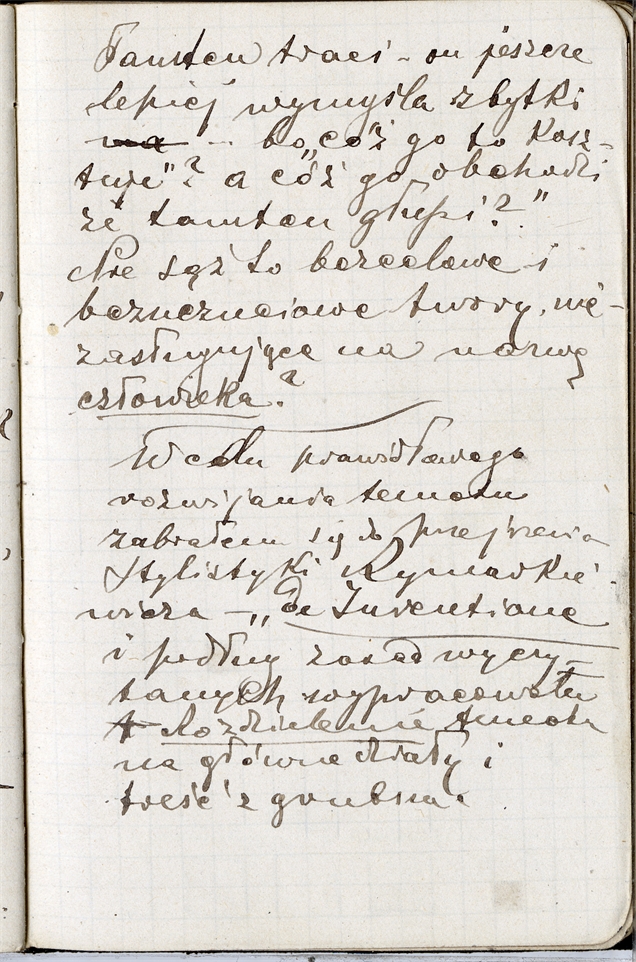 Tamten traci – on jeszcze
lepiej wymyśla zbytki
na – bo „cóż go to kosz-
tuje”? a cóż go obchodzi
że tamten głupi?”
Nie sąż to bezcelowe i
bezuczuciowe twory, nie-
zasługujące na nazwę
człowieka?
W celu prawidłowego
rozwijania tematu
zabrałem się do przejrzenia
Stylistyki Rymarkie-
wicza – „de Inventione
i podług zasad wyczy-
tanych wypracowałem
t Rozdzielenie tematu
na główne działy i
treść z grubsza.